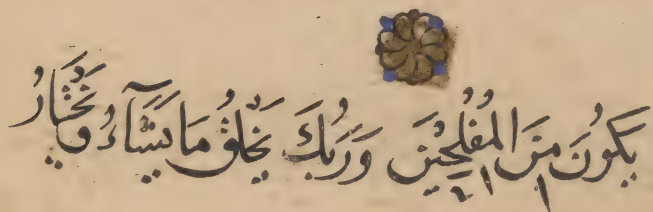 يَكُونَ مِنَ الْمُفْلِحِينَ وَرَبُّكَ يَخْلُقُ مَا يَشَآءُ وَيَخْتَارُ